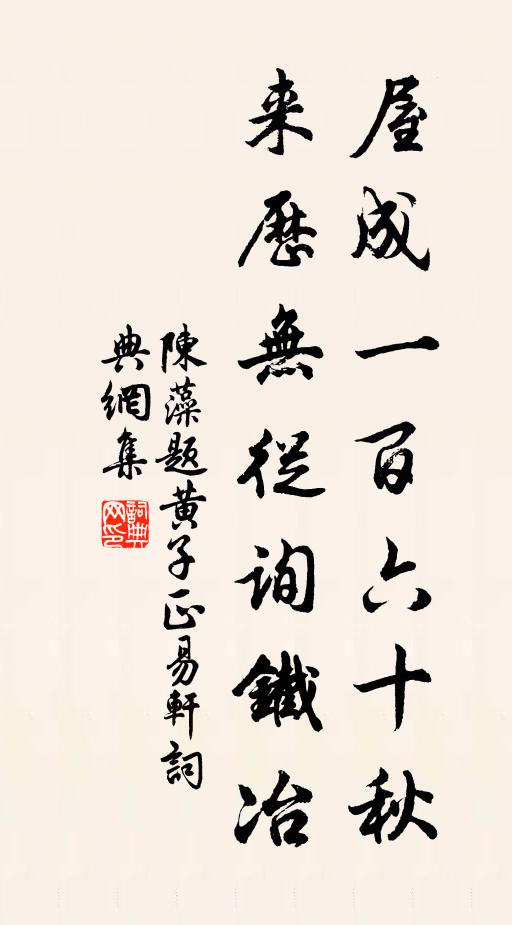 屋成一百六十秋
来歷無從詢鐵冶
陳藻題黄子正易軒詞
典網集
詞典网印